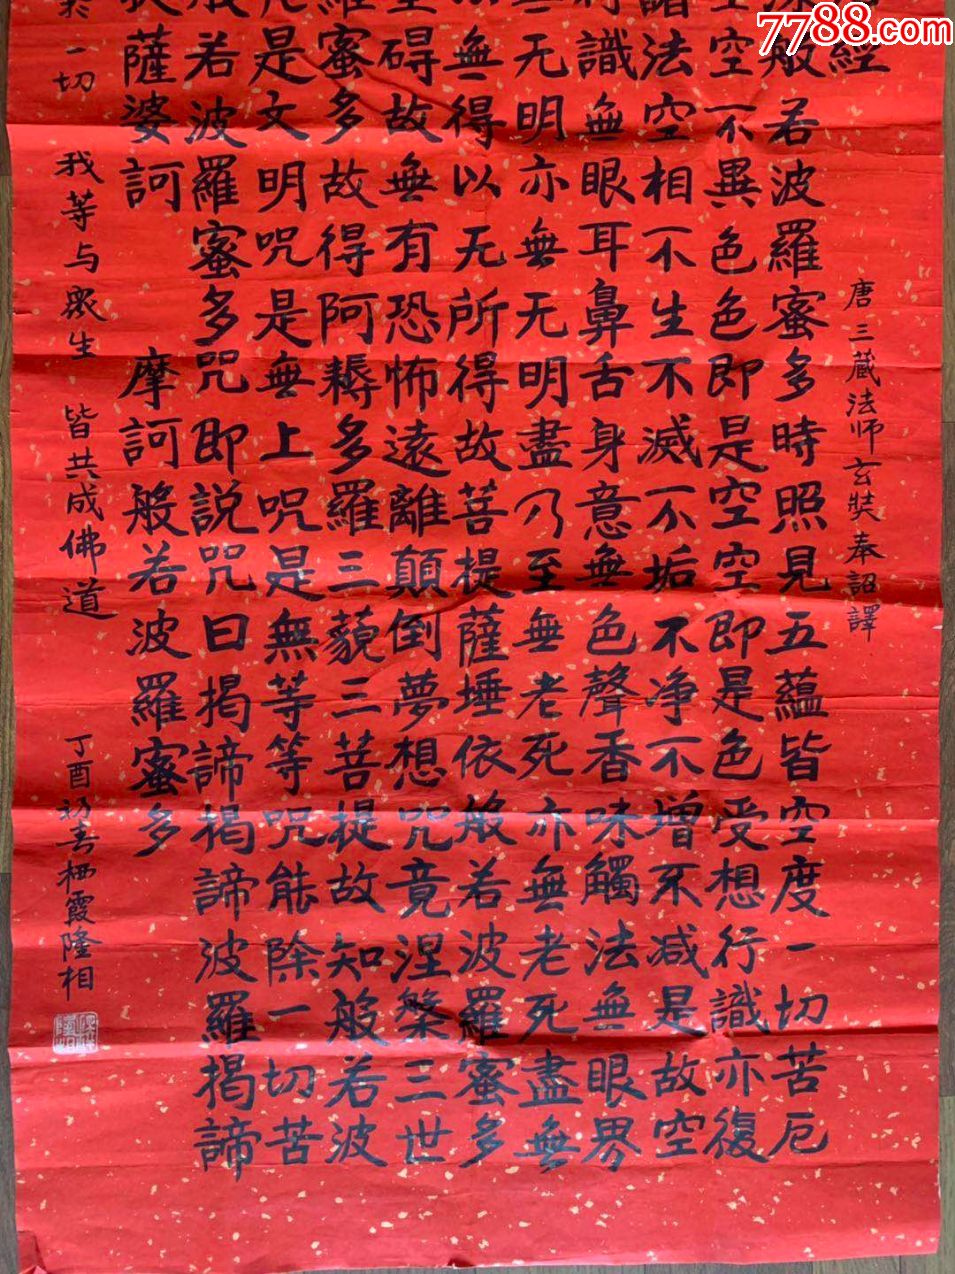 7788.com
經 唐三藏法師玄奘奉詔譯
深般若波羅蜜多時照見五蘊皆空度一切苦厄
空不異色色即是空空即是色受想行識亦復
諸法空相不生不滅不垢不净不增不减是故空
行識無眼耳鼻舌身意無色聲香味觸法無眼界
无明亦無无明盡乃至無老死亦無老死盡無
無得以无所得故菩提薩埵依般若波羅蜜多
碍故無有恐怖遠離顛倒夢想究竟涅槃三世
羅蜜多故得阿耨多羅三藐三菩提故知般若波
咒是文明咒是無上咒是無等等咒能除一切苦
般若波羅蜜多咒即説咒曰揭諦揭諦波羅揭諦
薩婆訶 摩訶般若波羅蜜多
於一切 我等与眾生 皆共成佛道 丁酉初春栖霞隆相